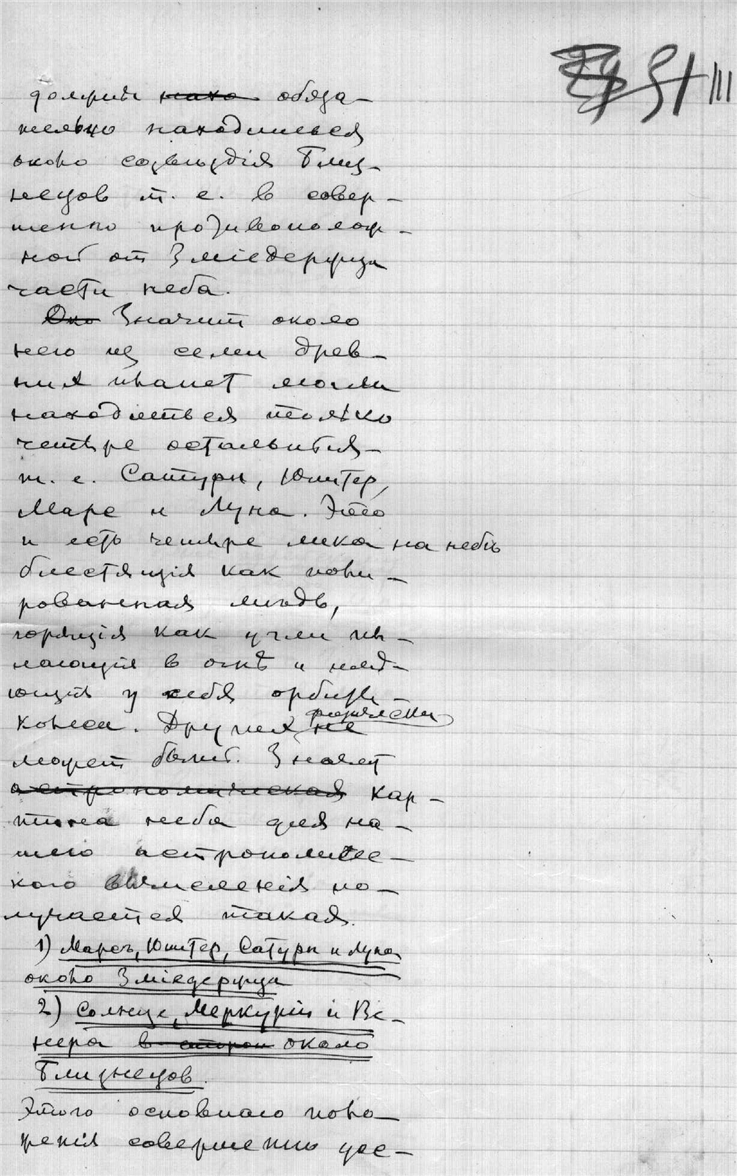 должны обяза-
тельно находиться
около созвѣздія Близ-
нецов т. е. в совер-
шенно противополож-
ной от Зміедержца
части неба.
Око Значит около
него из семи древ-
них планет могли
находиться только
четыре остальныя-
т. е. Сатурн, Юпитер,
Марс и Луна. Это
и есть четыре лика на небѣ
блестящія как поли-
рованная мѣдь,
горящія как угли пы-
лающія в огнѣ и имѣ-
ющія у себя орбиты-
колеса. Других
не
может быть. Значит
астрономическая кар-
тина неба для на-
шего астрономичес-
кого вычисленія по-
лучается такая.
1) Марсъ, Юпитер, Сатурн и Луна
около Зміедержца
2) Солнце, Меркурій и Ве-
нера в сторон около
Близнецов.
Этого основного поло-
женія совершенно дос-